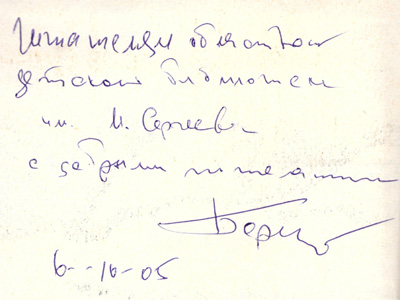 Читателям областной
детской библиотеки
им. М. Сергеева
с добрыми пожеланиями
6-10-05